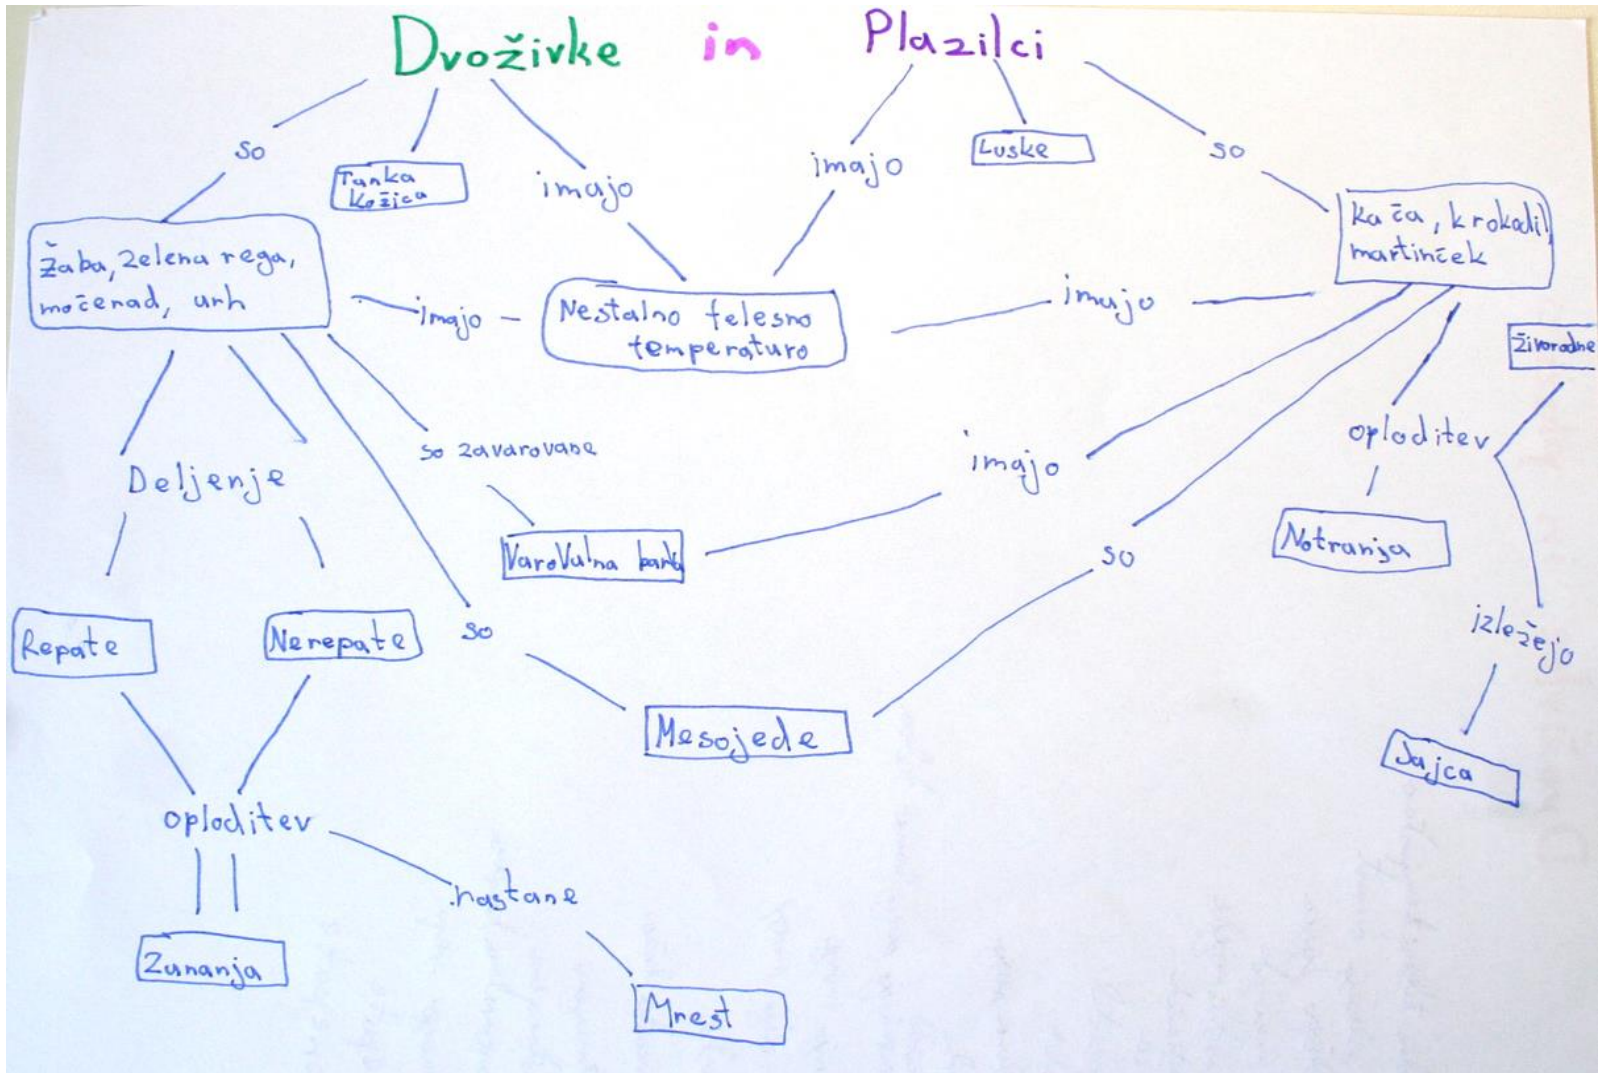 Dvoživke in Plazilci
so
Tanka
Kožica
imajo
imajo
Luske
so
Žaba, zelena rega,
močerad, urh
imajo
Nestalno telesno
temperaturo
imajo
Kača, krokodil,
martinček
Živorodne
Deljenje
so zavarovane
imajo
oploditev
Varovalna barva
so
Notranja
Repate
Nerepate
so
izležejo
Mesojede
Jajca
oploditev
nastane
Zunanja
Mrest